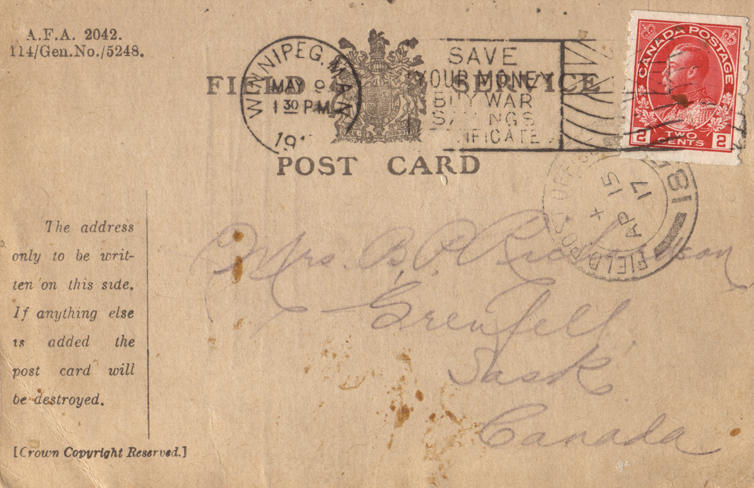 A.F.A. 2042.
114/Gen.No./5248.
WINNIPEG MAN
MAY 9
1 30 PM
191
SAVE
YOUR MONEY
BUY WAR
SAVINGS
IFICATE
CANADA POSTAGE
2 TWO CENTS 2
FIELD SERVICE
POST CARD
FIELD POST OFFICE
AP 15
17
181
The address
only to be writ-
ten on this side.
If anything else
is added the
post card will
be destroyed.
[Crown Copyright Reserved.]
Mrs. B. P. Richardson
Grenfell
Sask
Canada